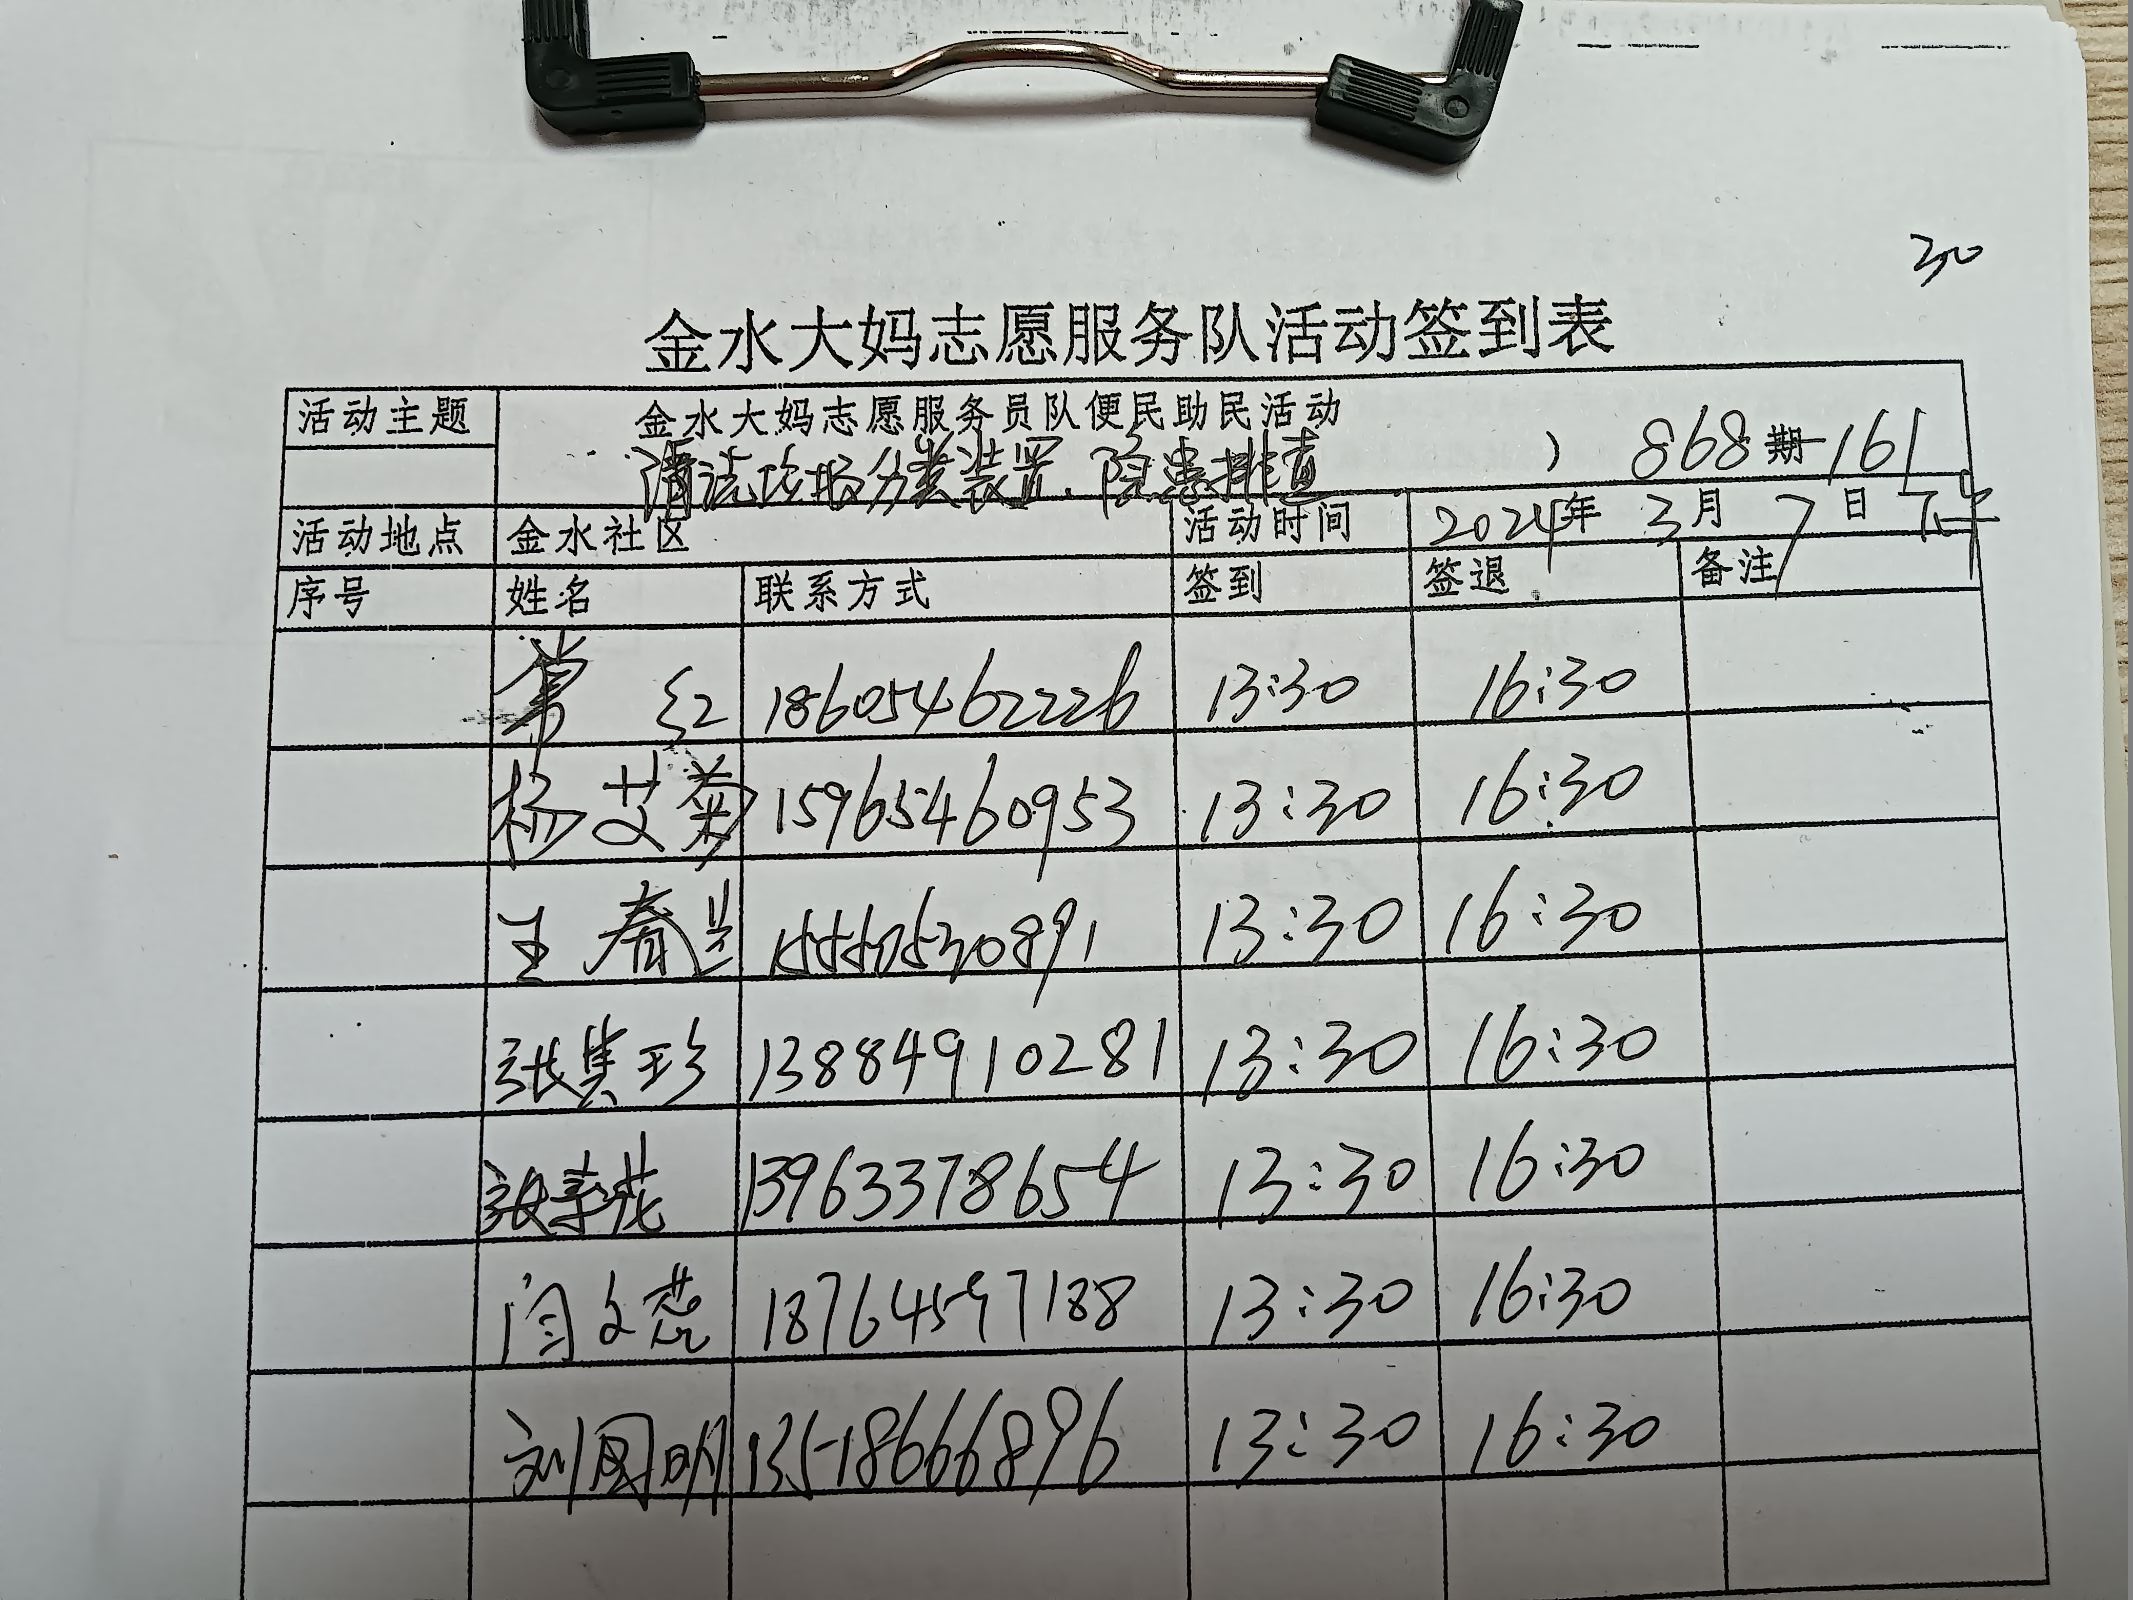 30
金水大妈志愿服务队活动签到表
活动主题 金水大妈志愿服务员队便民助民活动
清洁垃圾分类装置、隐患排查 ） 868期-161
活动地点 金水社区 活动时间 2024年 3月 7日 下午
序号 姓名 联系方式 签到 签退 备注
红 18605462226 13:30 16:30
杨艾菊 15965460953 13:30 16:30
王春兰 15550530891 13:30 16:30
张其珍 13884910281 13:30 16:30
张 花 13963378654 13:30 16:30
闫文蕊 18764597188 13:30 16:30
刘国明 13518666896 13:30 16:30